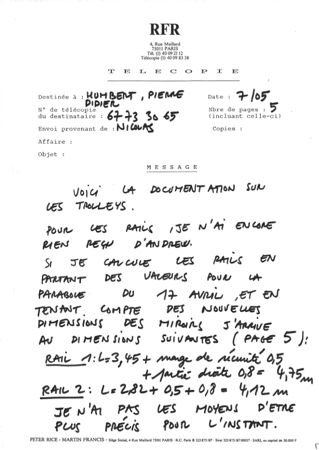 RFR
4, Rue Maillard
75011 PARIS
Tél. (1) 40 09 21 12
Télécopie (1) 40 09 83 38
T E L E C O P I E
Destinée à : HUMBERT, PIERRE
DIDIER
Date : 7/05
N° de télécopie
du destinataire : 67 73 30 65
Nbre de pages : 5
(incluant celle-ci)
Envoi provenant de : NICOLAS
Copies :
Affaire :
Objet :
M E S S A G E
VOICI LA DOCUMENTATION SUR
LES TROLLEYS.
POUR LES RAILS, JE N'AI ENCORE
RIEN REÇU D'ANDREW.
SI JE CALCULE LES RAILS EN
PARTANT DES VALEURS POUR LA
PARABOLE DU 17 AVRIL, ET EN
TENANT COMPTE DES NOUVELLES
DIMENSIONS DES MIROIRS J'ARRIVE
AU DIMENSIONS SUIVANTES (PAGE 5) :
RAIL 1 : L=3,45 + marge de sécurité 0,5
+ partie droite 0,8 = 4,75 m
RAIL 2 : L=2,82 + 0,5 + 0,8 = 4,12 m
JE N'AI PAS LES MOYENS D'ETRE
PLUS PRÉCIS POUR L'INSTANT.
PETER RICE - MARTIN FRANCIS - Siège Social, 4 Rue Maillard 75011 PARIS